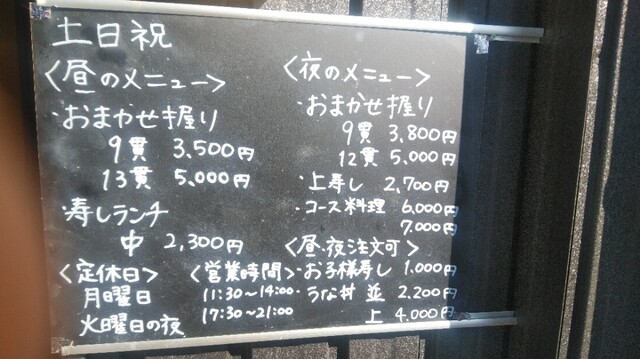 土日祝
〈昼のメニュー〉
・おまかせ握り
9貫 3,500円
13貫 5,000円
・寿しランチ
中 2,300円
〈定休日〉
月曜日
火曜日の夜
〈営業時間〉
11:30〜14:00
17:30〜21:00
〈夜のメニュー〉
・おまかせ握り
9貫 3,800円
12貫 5,000円
・上寿し 2,700円
・コース料理 6,000円
7,000円
〈昼・夜注文可〉
・お子様寿し 1,000円
・うな丼 並 2,200円
上 4,000円